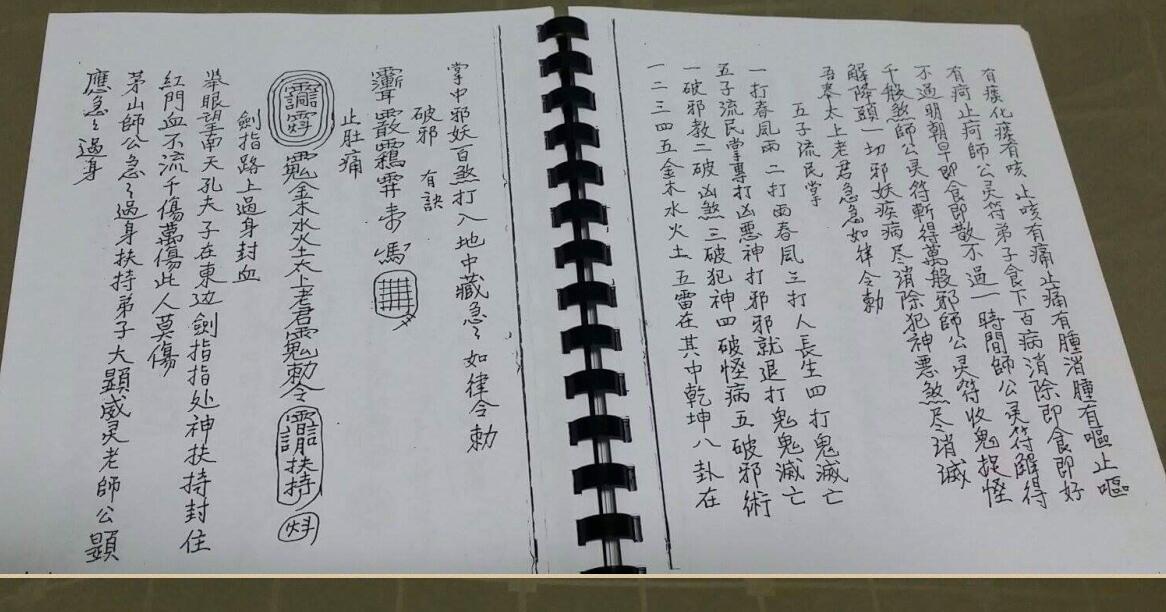 有痰化痰有咳止咳有痛止痛有腫消腫有嘔止嘔
有疴止疴師公灵符弟子食下百病消除即食即好
不過明朝早即食即散不過一時間師公灵符解得
千般煞師公灵符斬得萬般邪師公灵符收鬼捉怪
解降頭一切邪妖疾病尽消除犯神悪煞尽消滅
吾奉太上老君急急如律令勅
五子流民掌
一打春風雨二打雨春風三打人長生四打鬼滅亡
五子流民掌專打凶悪神打邪邪就退打鬼鬼滅亡
一破邪教二破凶煞三破犯神四破怪病五破邪術
一二三四五金木水火土五雷在其中乾坤八卦在
掌中邪妖百煞打入地中藏急々如律令勅
破邪 有訣
止肚痛
金木水火土太上老君 勅令 扶持
劍指路上過身封血
举眼望南天孔夫子在東边劍指指处神扶持封住
紅門血不流千傷萬傷此人莫傷
茅山師公急々過身扶持弟子大顯威灵老師公顯
應急々過身